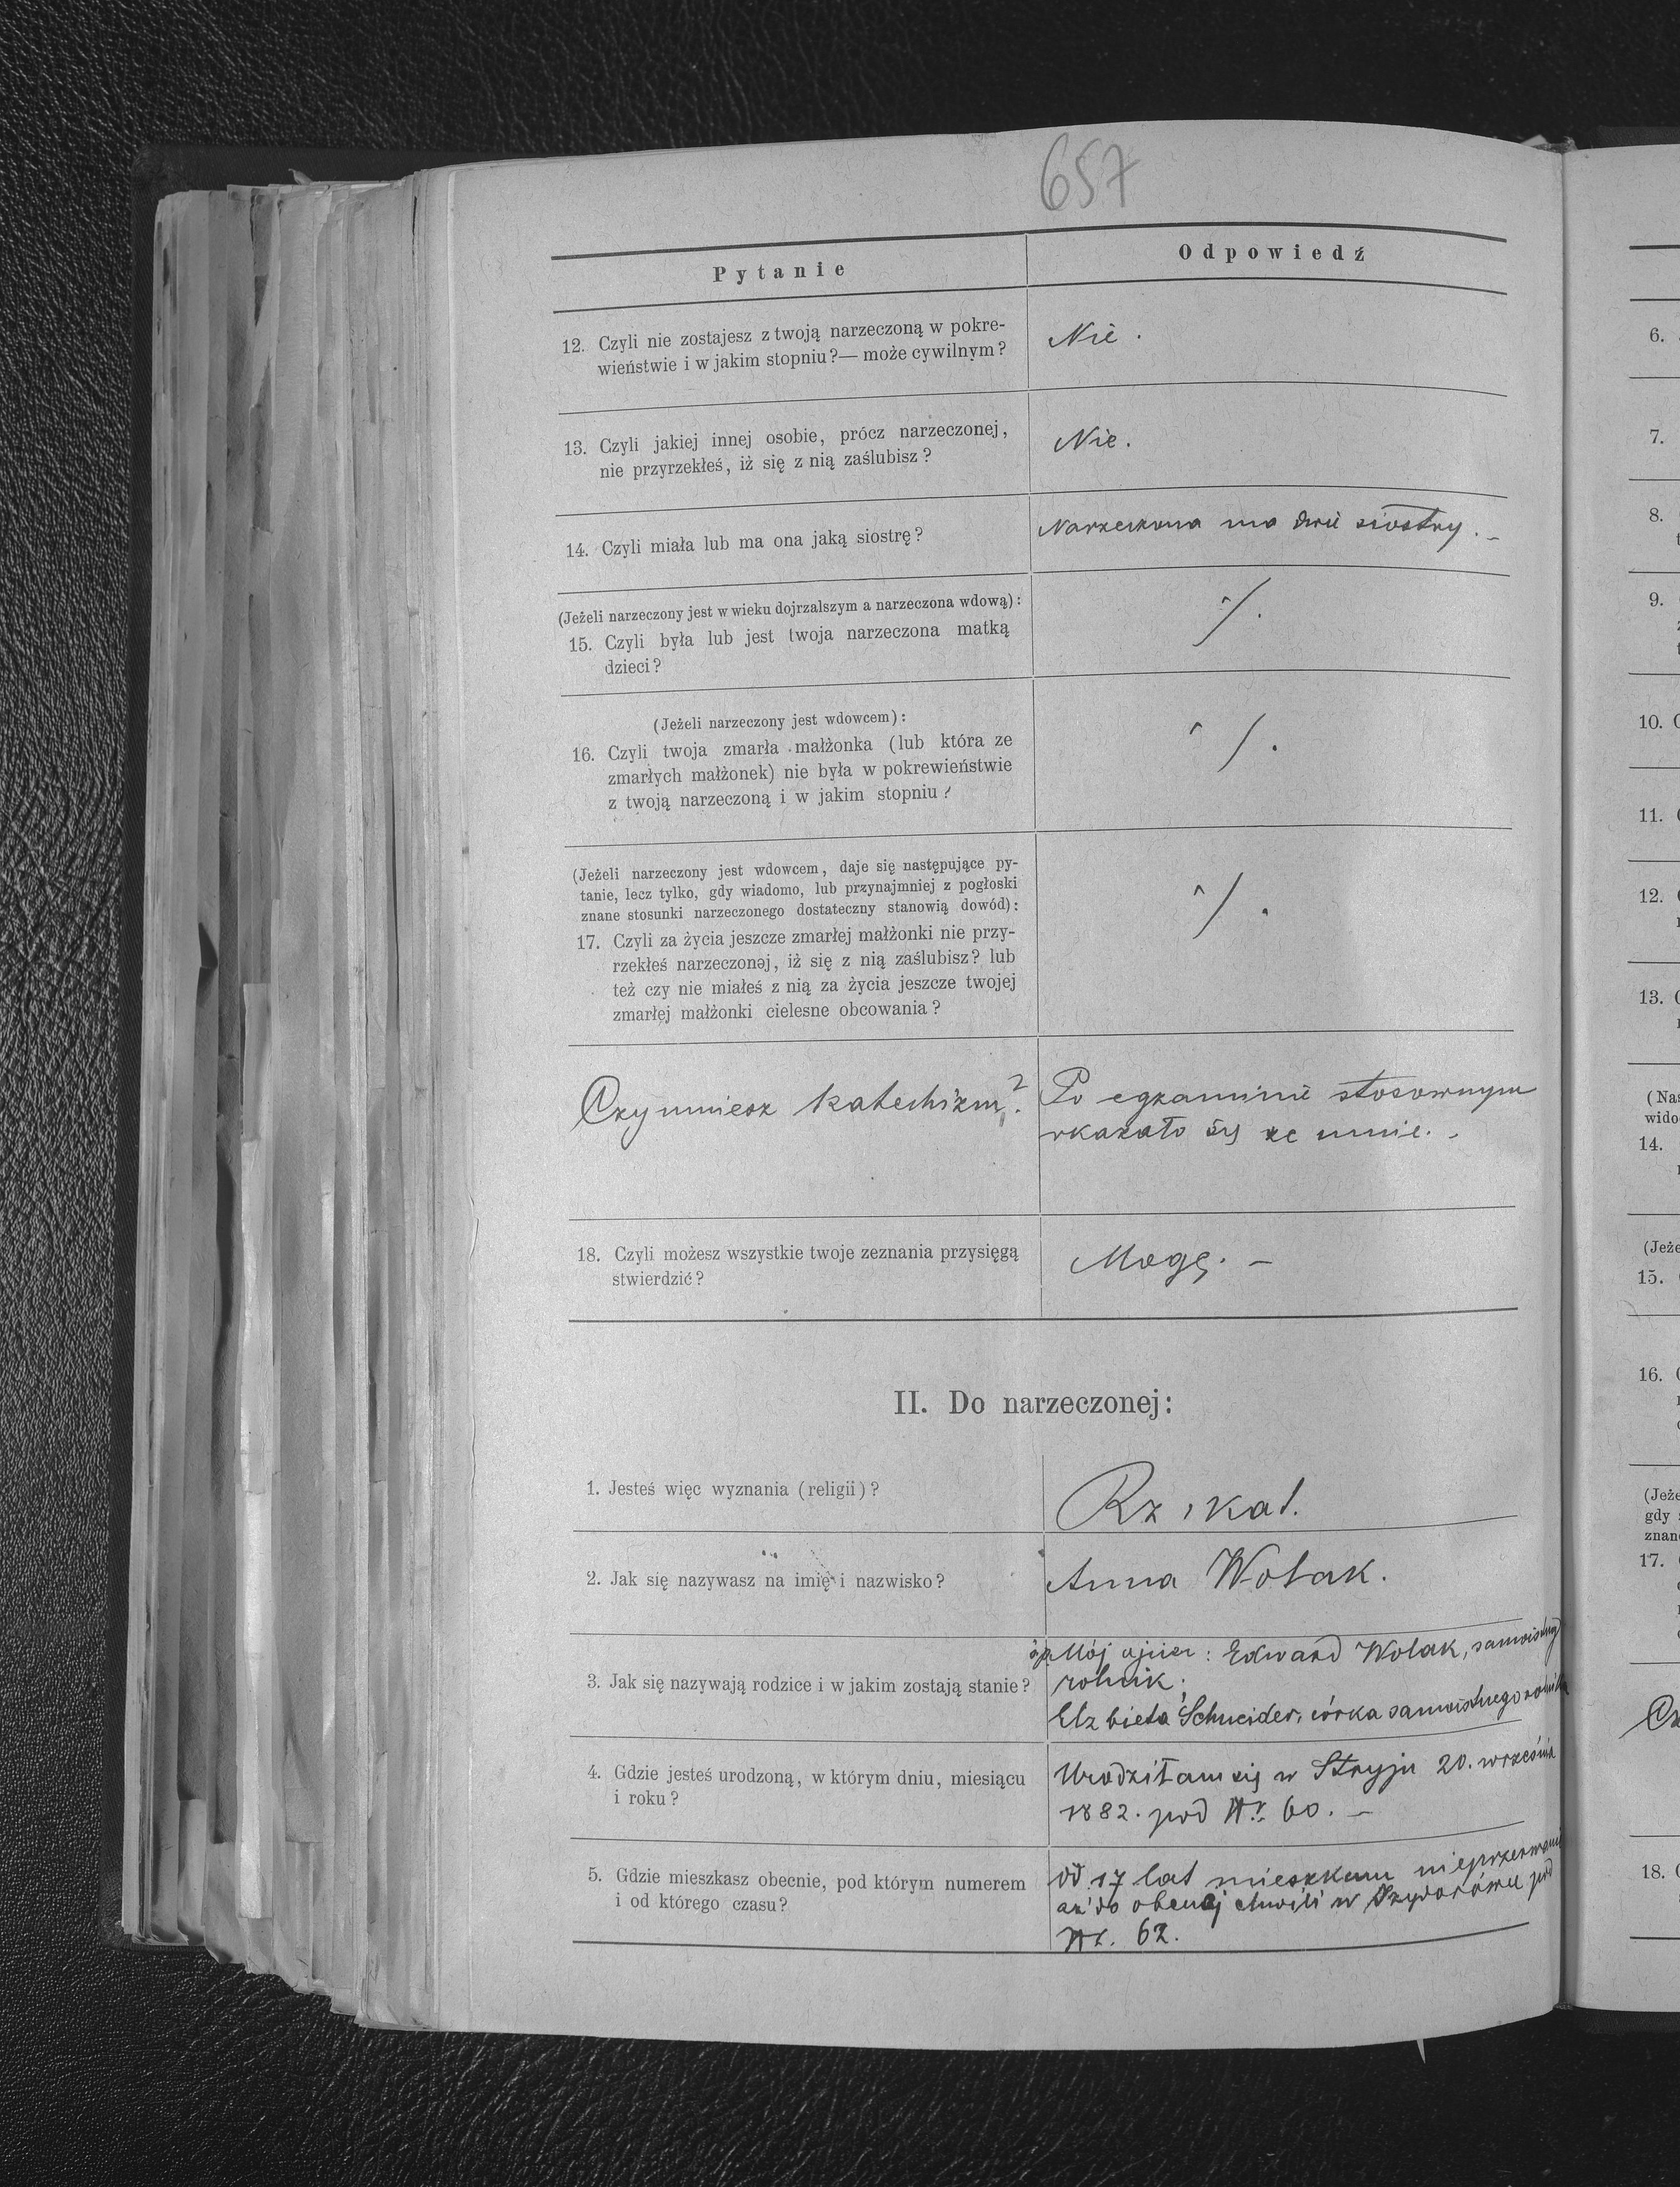 657
Pytanie
Odpowiedź
12. Czyli nie zostajesz z twoją narzeczoną w pokre-
wieństwie i w jakim stopniu?— może cywilnym?
Nie.
13. Czyli jakiej innej osobie, prócz narzeczonej,
nie przyrzekłeś, iż się z nią zaślubisz?
Nie.
14. Czyli miała lub ma ona jaką siostrę?
Narzeczona ma dwie siostry. –
(Jeżeli narzeczony jest w wieku dojrzalszym a narzeczona wdową):
15. Czyli była lub jest twoja narzeczona matką
dzieci?
/.
(Jeżeli narzeczony jest wdowcem):
16. Czyli twoja zmarła małżonka (lub która ze
zmarłych małżonek) nie była w pokrewieństwie
z twoją narzeczoną i w jakim stopniu?
/.
(Jeżeli narzeczony jest wdowcem, daje się następujące py-
tanie, lecz tylko, gdy wiadomo, lub przynajmniej z pogłoski
znane stosunki narzeczonego dostateczny stanowią dowód):
17. Czyli za życia jeszcze zmarłej małżonki nie przy-
rzekłeś narzeczonej, iż się z nią zaślubisz? lub
też czy nie miałeś z nią za życia jeszcze twojej
zmarłej małżonki cielesne obcowania?
/.
Czy umiesz katechizm?
Po egzaminie stosownym
okazało się ze umie. –
18. Czyli możesz wszystkie twoje zeznania przysięgą
stwierdzić?
Mogę. –
II. Do narzeczonej:
1. Jesteś więc wyznania (religii)?
Rz, kat.
2. Jak się nazywasz na imię i nazwisko?
Anna Wolak.
3. Jak się nazywają rodzice i w jakim zostają stanie?
śp. Mój ojciec: Edward Wolak, samoistny
rolnik;
Elzbieta Schneider, córka samoistnego rolnika
4. Gdzie jesteś urodzoną, w którym dniu, miesiącu
i roku?
Urodziłam się w Stryju 20. września
1882. pod Nr. 60. –
5. Gdzie mieszkasz obecnie, pod którym numerem
i od którego czasu?
od 17 lat mieszkam nieprzerwanie
aż do obecnej chwili w pod
Nr. 62.
6.
7.
8.
9.
10.
11.
12.
13.
14.
15.
16.
17.
18.